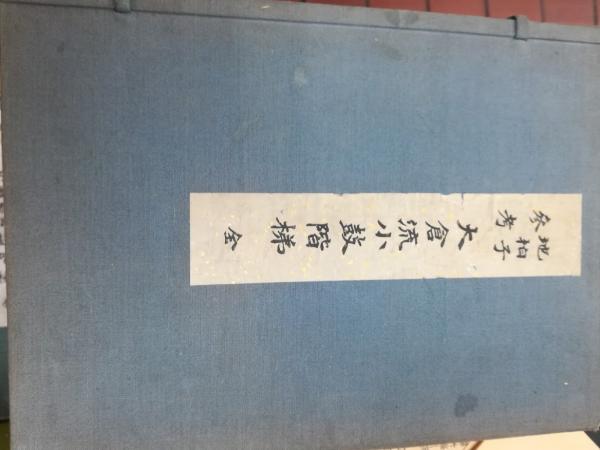 地拍子
参考
大倉流小鼓階梯 全